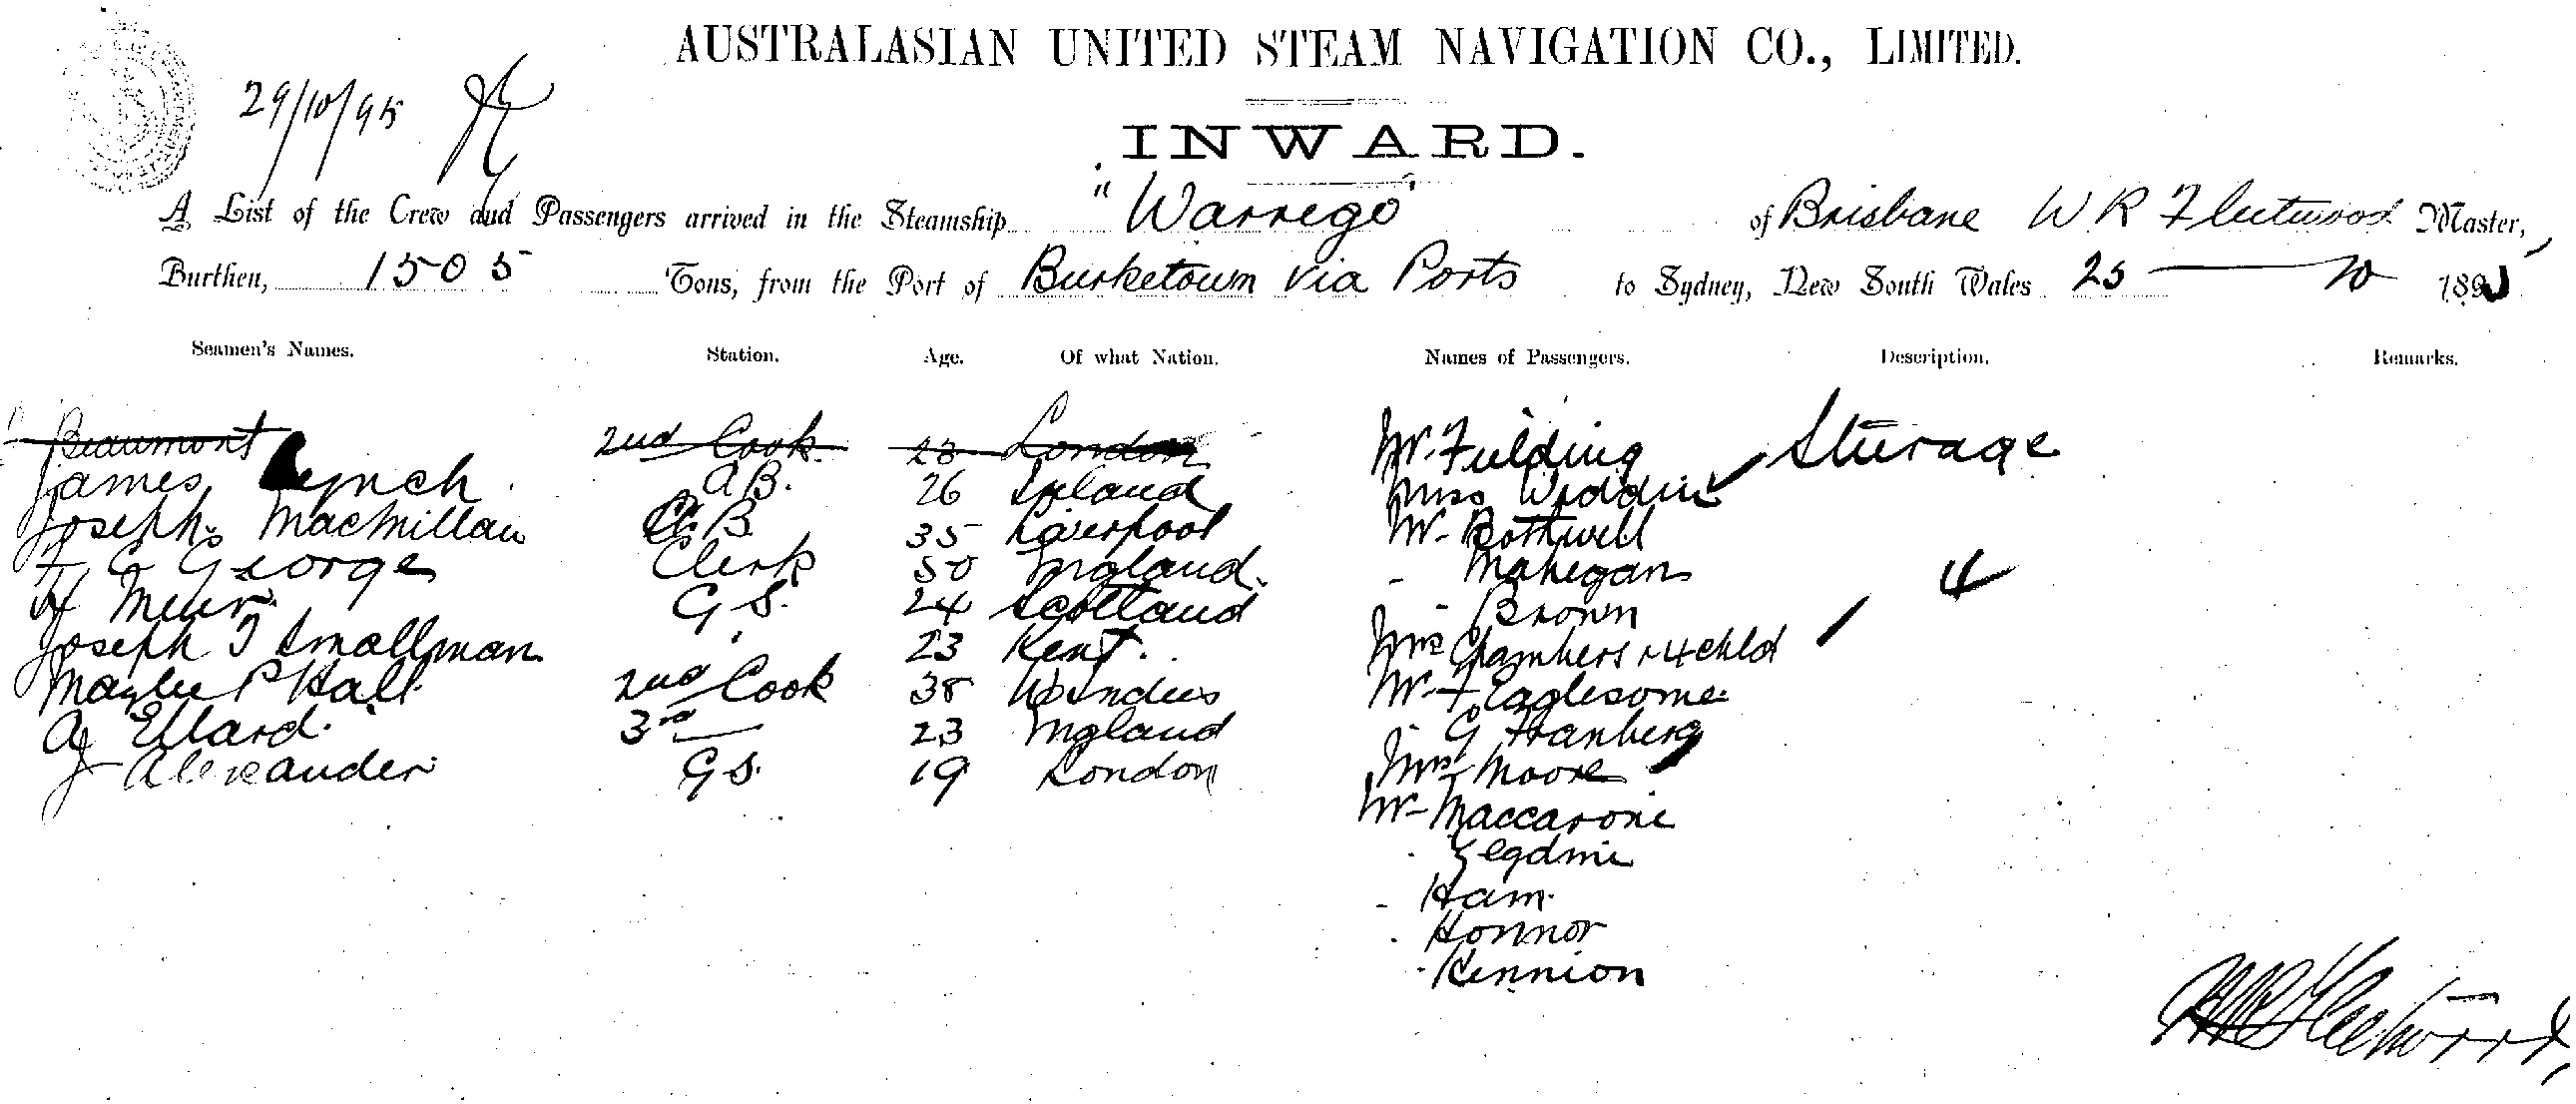 AUSTRALASIAN UNITED STEAM NAVIGATION CO., LIMITED.
29/10/95
INWARD.
A List of the Crew and Passengers arrived in the Steamship "Warrego" of Brisbane W R Fleetwood Master,
Burthen, 1505 Tons, from the Port of Burketown via Ports to Sydney, New South Wales 25 — 10 1895
Seamen's Names. Station. Age. Of what Nation. Names of Passengers. Description. Remarks.
Beaumont 2nd Cook 23 London Mr. Fielding Steerage
James Lynch A B. 26 Ireland Miss
Joseph MacMillan A B. 35 Liverpool Mr. Bothwell
F C George Clerk 50 England. - Mahegan 4
H Meur G S. 24 Scotland - Brown
Joseph T Smallman " 23 Kent. Mrs Chambers & 4 child
P Hall 2nd Cook 38 W Indies Mr. F Eaglesome
A Ellard 3rd — 23 England " G Franberg
J Alexander G S. 19 London Mrs Moore
Mr. Maccarone
- Ham.
- Honnor
- Kennion
W R Fleetwood